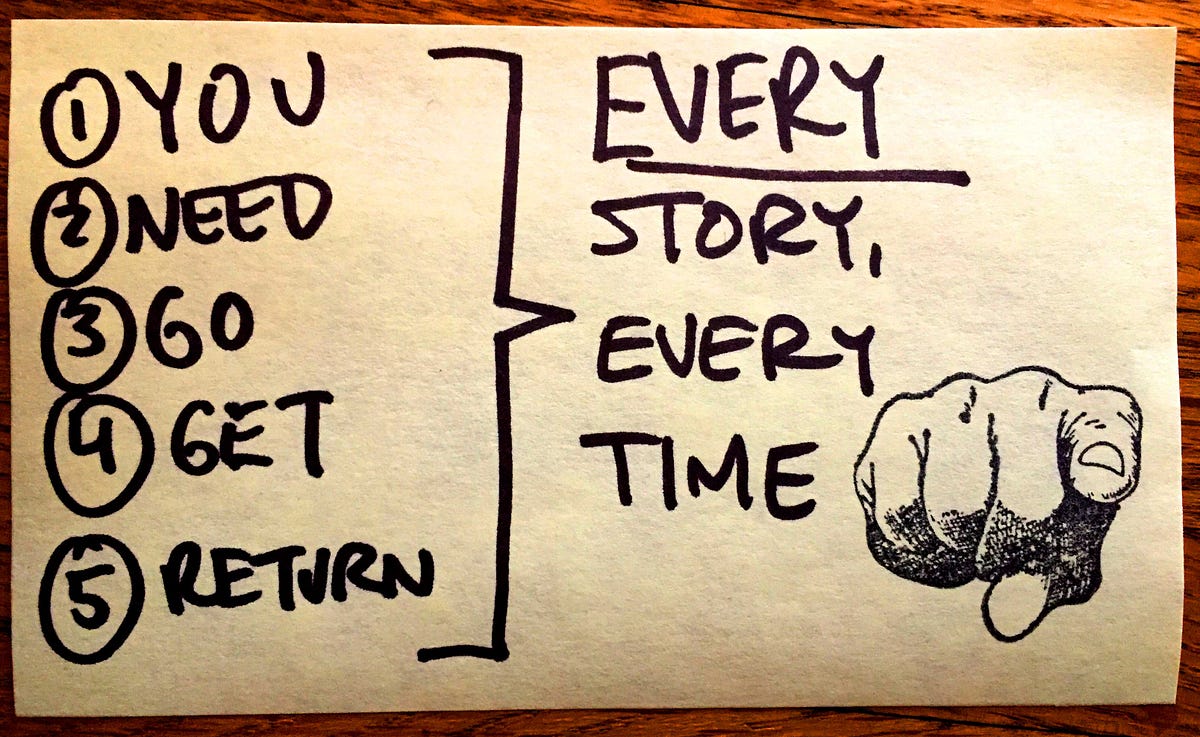 1 YOU
2 NEED
3 GO
4 GET
5 RETURN
EVERY
STORY,
EVERY
TIME